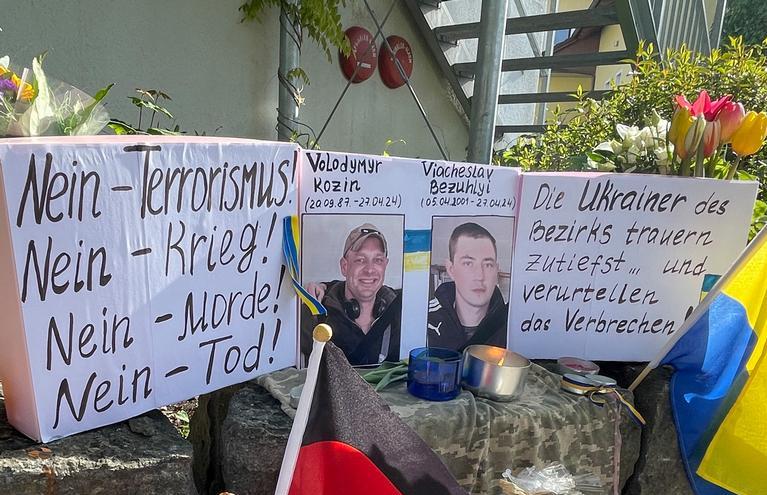 Nein - Terrorismus!
Nein - Krieg!
Nein - Morde!
Nein - Tod!
Volodymyr
Kozin
(20.09.87.-27.04.24)
Viacheslav
Bezuhlyi
(05.04.2001-27.04.24)
Die Ukrainer des
Bezirks trauern
zutiefst... und
verurteilen
das Verbrechen!